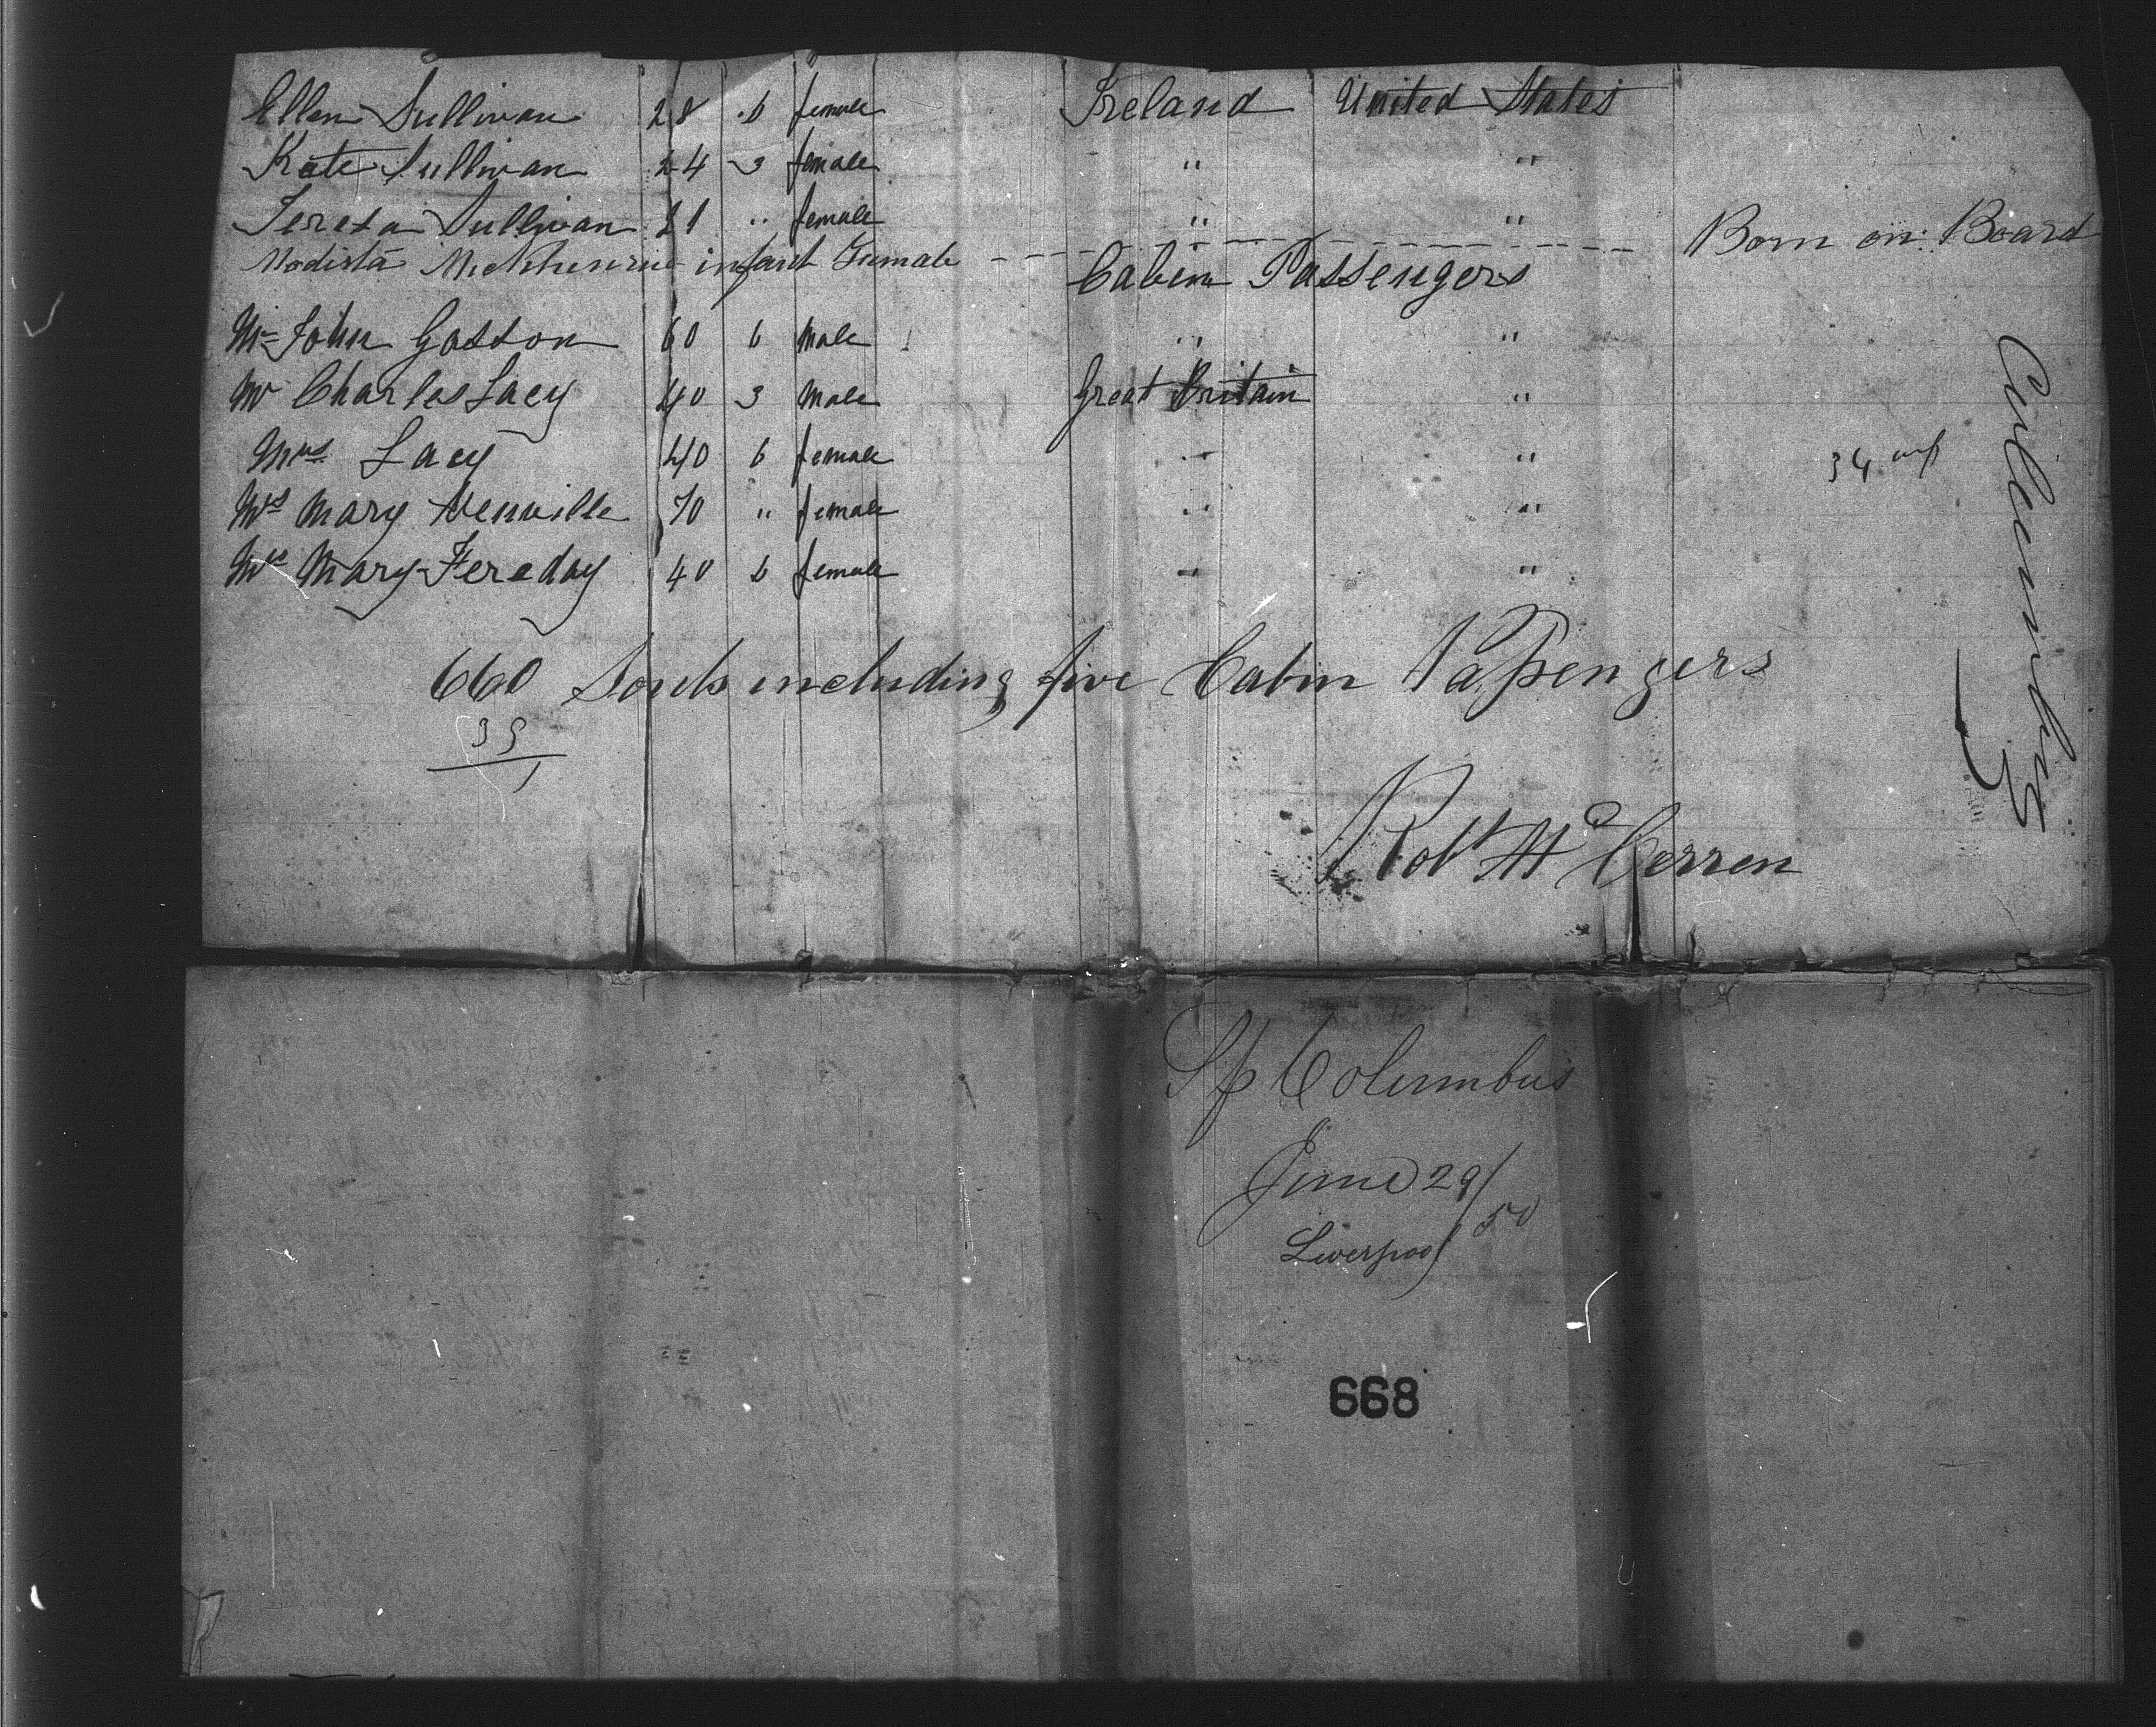 Ellen Sullivan 28 6 female Ireland United States
Kate Sullivan 24 3 female " "
Teresa Sullivan 21 " female " "
Modista infant Female Born on Board
Cabin Passengers
Mr John Gaston 60 6 Male " "
Mr Charles Lacy 40 3 Male Great Britain "
Mrs Lacy 40 6 female " " 34
Mrs Mary Neuville 70 " female " "
Mrs Mary Fereday 40 6 female " "
660 Souls including five Cabin Passengers
35
Robt McCerren
Columbus
Sp Columbus
June 29/50
Liverpool
668